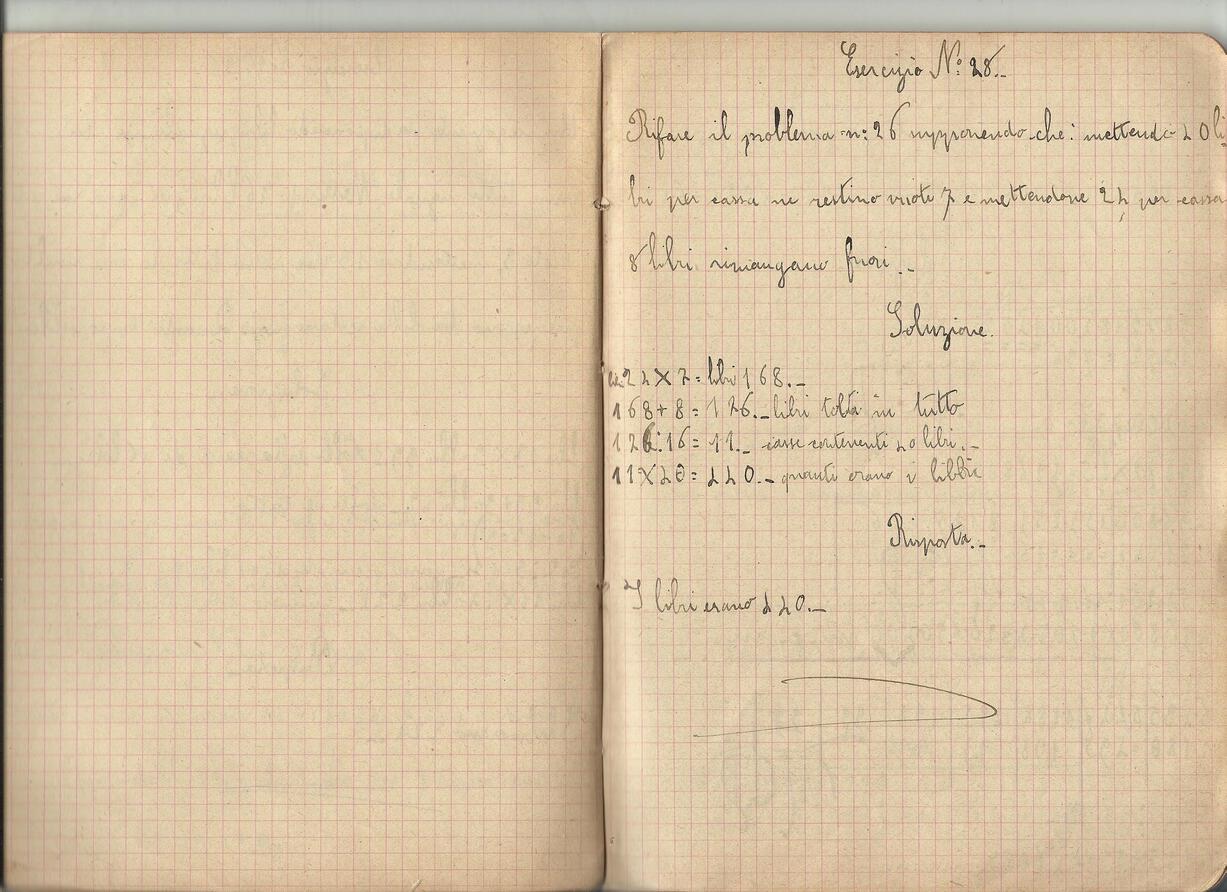 Esercizio N.º 28.-
Rifare il problema n: 26 supponendo che: mettendo 20 li-
bri per cassa ne restino vuote 7 e mettendone 24 per cassa
8 libri rimangano fuori.-
Soluzione.
24 X 7 = libri 168.-
168 + 8 = 176.- libri tolti in tutto
176:16 = 11.- casse contenenti 20 libri.-
11 X 20 = 220.- quanti erano i libbri
Risposta.-
I libri erano 220.-